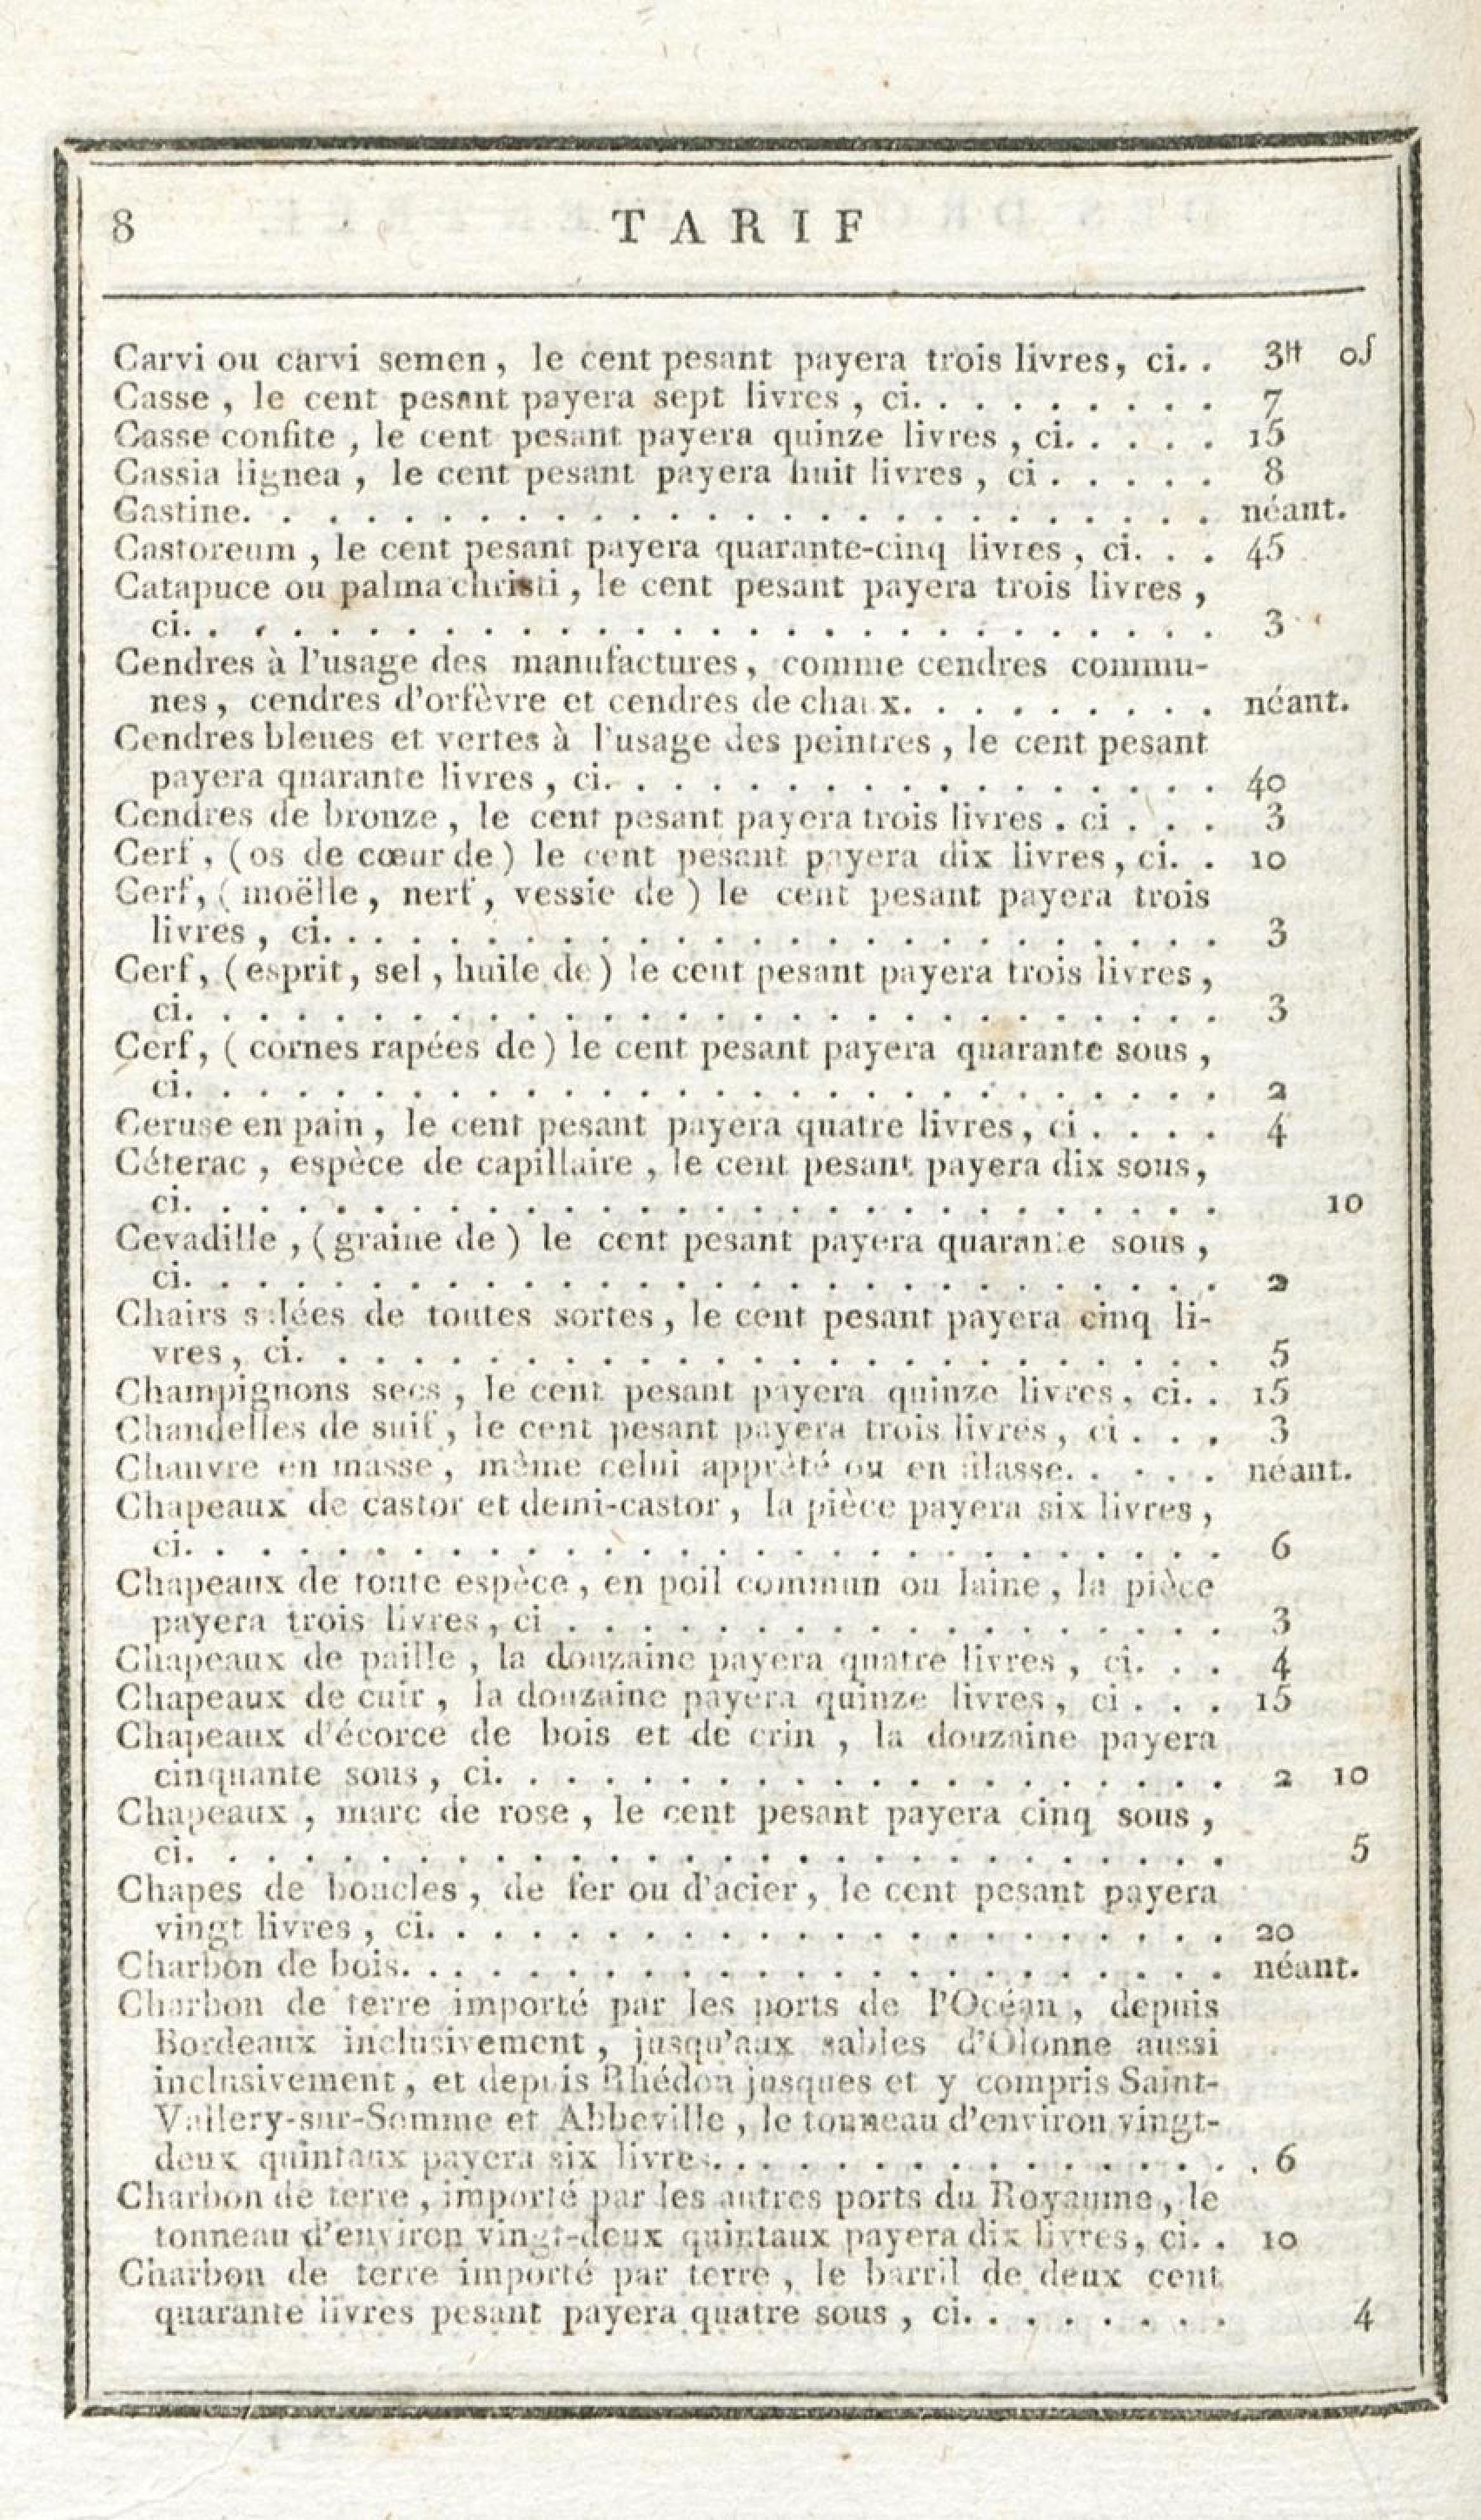 8 TARIF
Carvi ou carvi semen, le cent pesant payera trois livres, ci. . 3tt 0s
Casse, le cent pesant payera sept livres, ci. . . . . . . . . 7
Casse confite, le cent pesant payera quinze livres, ci. . . . . 15
Cassia lignea, le cent pesant payera huit livres, ci . . . . . 8
Castine. . . . . . . . . . . . . . . . . . . . . . . . . . néant.
Castoreum, le cent pesant payera quarante-cinq livres, ci. . . 45
Catapuce ou palma christi, le cent pesant payera trois livres,
ci. . . . . . . . . . . . . . . . . . . . . . . . . . . . 3
Cendres à l'usage des manufactures, comme cendres commu-
nes, cendres d'orfèvre et cendres de chaux. . . . . . . . . néant.
Cendres bleues et vertes à l'usage des peintres, le cent pesant
payera quarante livres, ci. . . . . . . . . . . . . . . . . 40
Cendres de bronze, le cent pesant payera trois livres. ci . . . 3
Cerf, (os de cœur de) le cent pesant payera dix livres, ci. . 10
Cerf, (moëlle, nerf, vessie de) le cent pesant payera trois
livres, ci. . . . . . . . . . . . . . . . . . . . . . . . . 3
Cerf, (esprit, sel, huile de) le cent pesant payera trois livres,
ci. . . . . . . . . . . . . . . . . . . . . . . . . . . . 3
Cerf, (cornes rapées de) le cent pesant payera quarante sous,
ci. . . . . . . . . . . . . . . . . . . . . . . . . . . . 2
Ceruse en pain, le cent pesant payera quatre livres, ci . . . . 4
Céterac, espèce de capillaire, le cent pesant payera dix sous,
ci. . . . . . . . . . . . . . . . . . . . . . . . . . . . 10
Cevadille, (graine de) le cent pesant payera quarante sous,
ci. . . . . . . . . . . . . . . . . . . . . . . . . . . . 2
Chairs salées de toutes sortes, le cent pesant payera cinq li-
vres, ci. . . . . . . . . . . . . . . . . . . . . . . . . 5
Champignons secs, le cent pesant payera quinze livres, ci. . 15
Chandelles de suif, le cent pesant payera trois livres, ci . . . 3
Chanvre en masse, même celui apprêté ou en filasse. . . . . néant.
Chapeaux de castor et demi-castor, la pièce payera six livres,
ci. . . . . . . . . . . . . . . . . . . . . . . . . . . . 6
Chapeaux de toute espèce, en poil commun ou laine, la pièce
payera trois livres, ci . . . . . . . . . . . . . . . . . . 3
Chapeaux de paille, la douzaine payera quatre livres, ci. . . 4
Chapeaux de cuir, la douzaine payera quinze livres, ci . . . 15
Chapeaux d'écorce de bois et de crin, la douzaine payera
cinquante sous, ci. . . . . . . . . . . . . . . . . . . . 2 10
Chapeaux, marc de rose, le cent pesant payera cinq sous,
ci. . . . . . . . . . . . . . . . . . . . . . . . . . . . 5
Chapes de boucles, de fer ou d'acier, le cent pesant payera
vingt livres, ci. . . . . . . . . . . . . . . . . . . . . . 20
Charbon de bois. . . . . . . . . . . . . . . . . . . . . . néant.
Charbon de terre importé par les ports de l'Océan, depuis
Bordeaux inclusivement, jusqu'aux sables d'Olonne aussi
inclusivement, et depuis Rhédon jusques et y compris Saint-
Vallery-sur-Somme et Abbeville, le tonneau d'environ vingt-
deux quintaux payera six livres. . . . . . . . . . . . . . . 6
Charbon de terre, importé par les autres ports du Royaume, le
tonneau d'environ vingt-deux quintaux payera dix livres, ci. . 10
Charbon de terre importé par terre, le barril de deux cent
quarante livres pesant payera quatre sous, ci. . . . . . . . 4